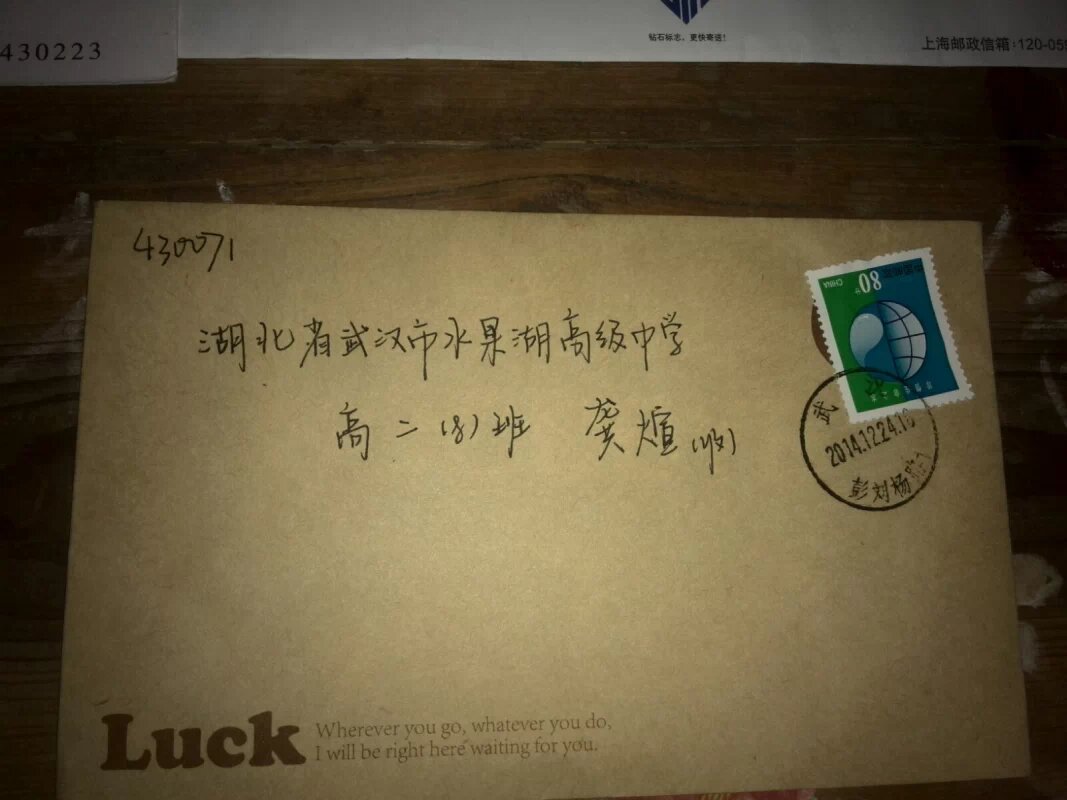 430223
钻石标志、更快寄送!
上海邮政信箱:120-059
430071
湖北省武汉市水果湖高级中学
高二(8)班 龚煊(收)
中国邮政
80分
CHINA
武汉
2014.12.24.16
彭刘杨
Luck
Wherever you go, whatever you do,
I will be right here waiting for you.